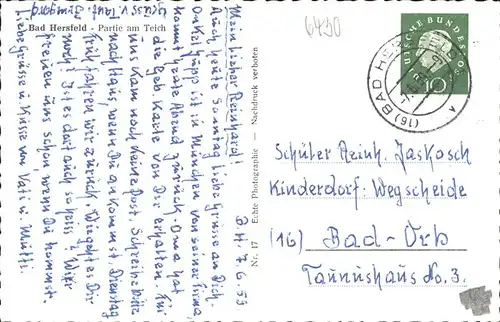 Bad Hersfeld - Partie am Teich
6430
DEUTSCHE BUNDESPOST
10
(16) BAD HERSFELD
Nr. 17 Echte Photographie — Nachdruck verboten
B.H. 7.6.59
Mein lieber Reinhard!
Auch heute Sonntag liebe Grüsse an Dich.
Onkel Jupp ist in München von seiner Firma,
kommt heute Abend zurück. Oma hat
die Geb. Karte von Dir erhalten. Für
uns kam noch keine Post. Schreibe bitte
nach Haus, wenn Du ankommst. Dienstag
Früh fahren wir zurück. Wie geht es Dir
noch? Ist es dort auch so heiss? Wir
freuen uns schon, wenn Du kommst.
Liebe Grüsse u. Küsse von Vati u. Mutti.
Grüsse v. Tant. Irmgard
Schüler Reinh. Jaskosch
Kinderdorf: Wegscheide
(16) Bad-Orb
Taunushaus No. 3.